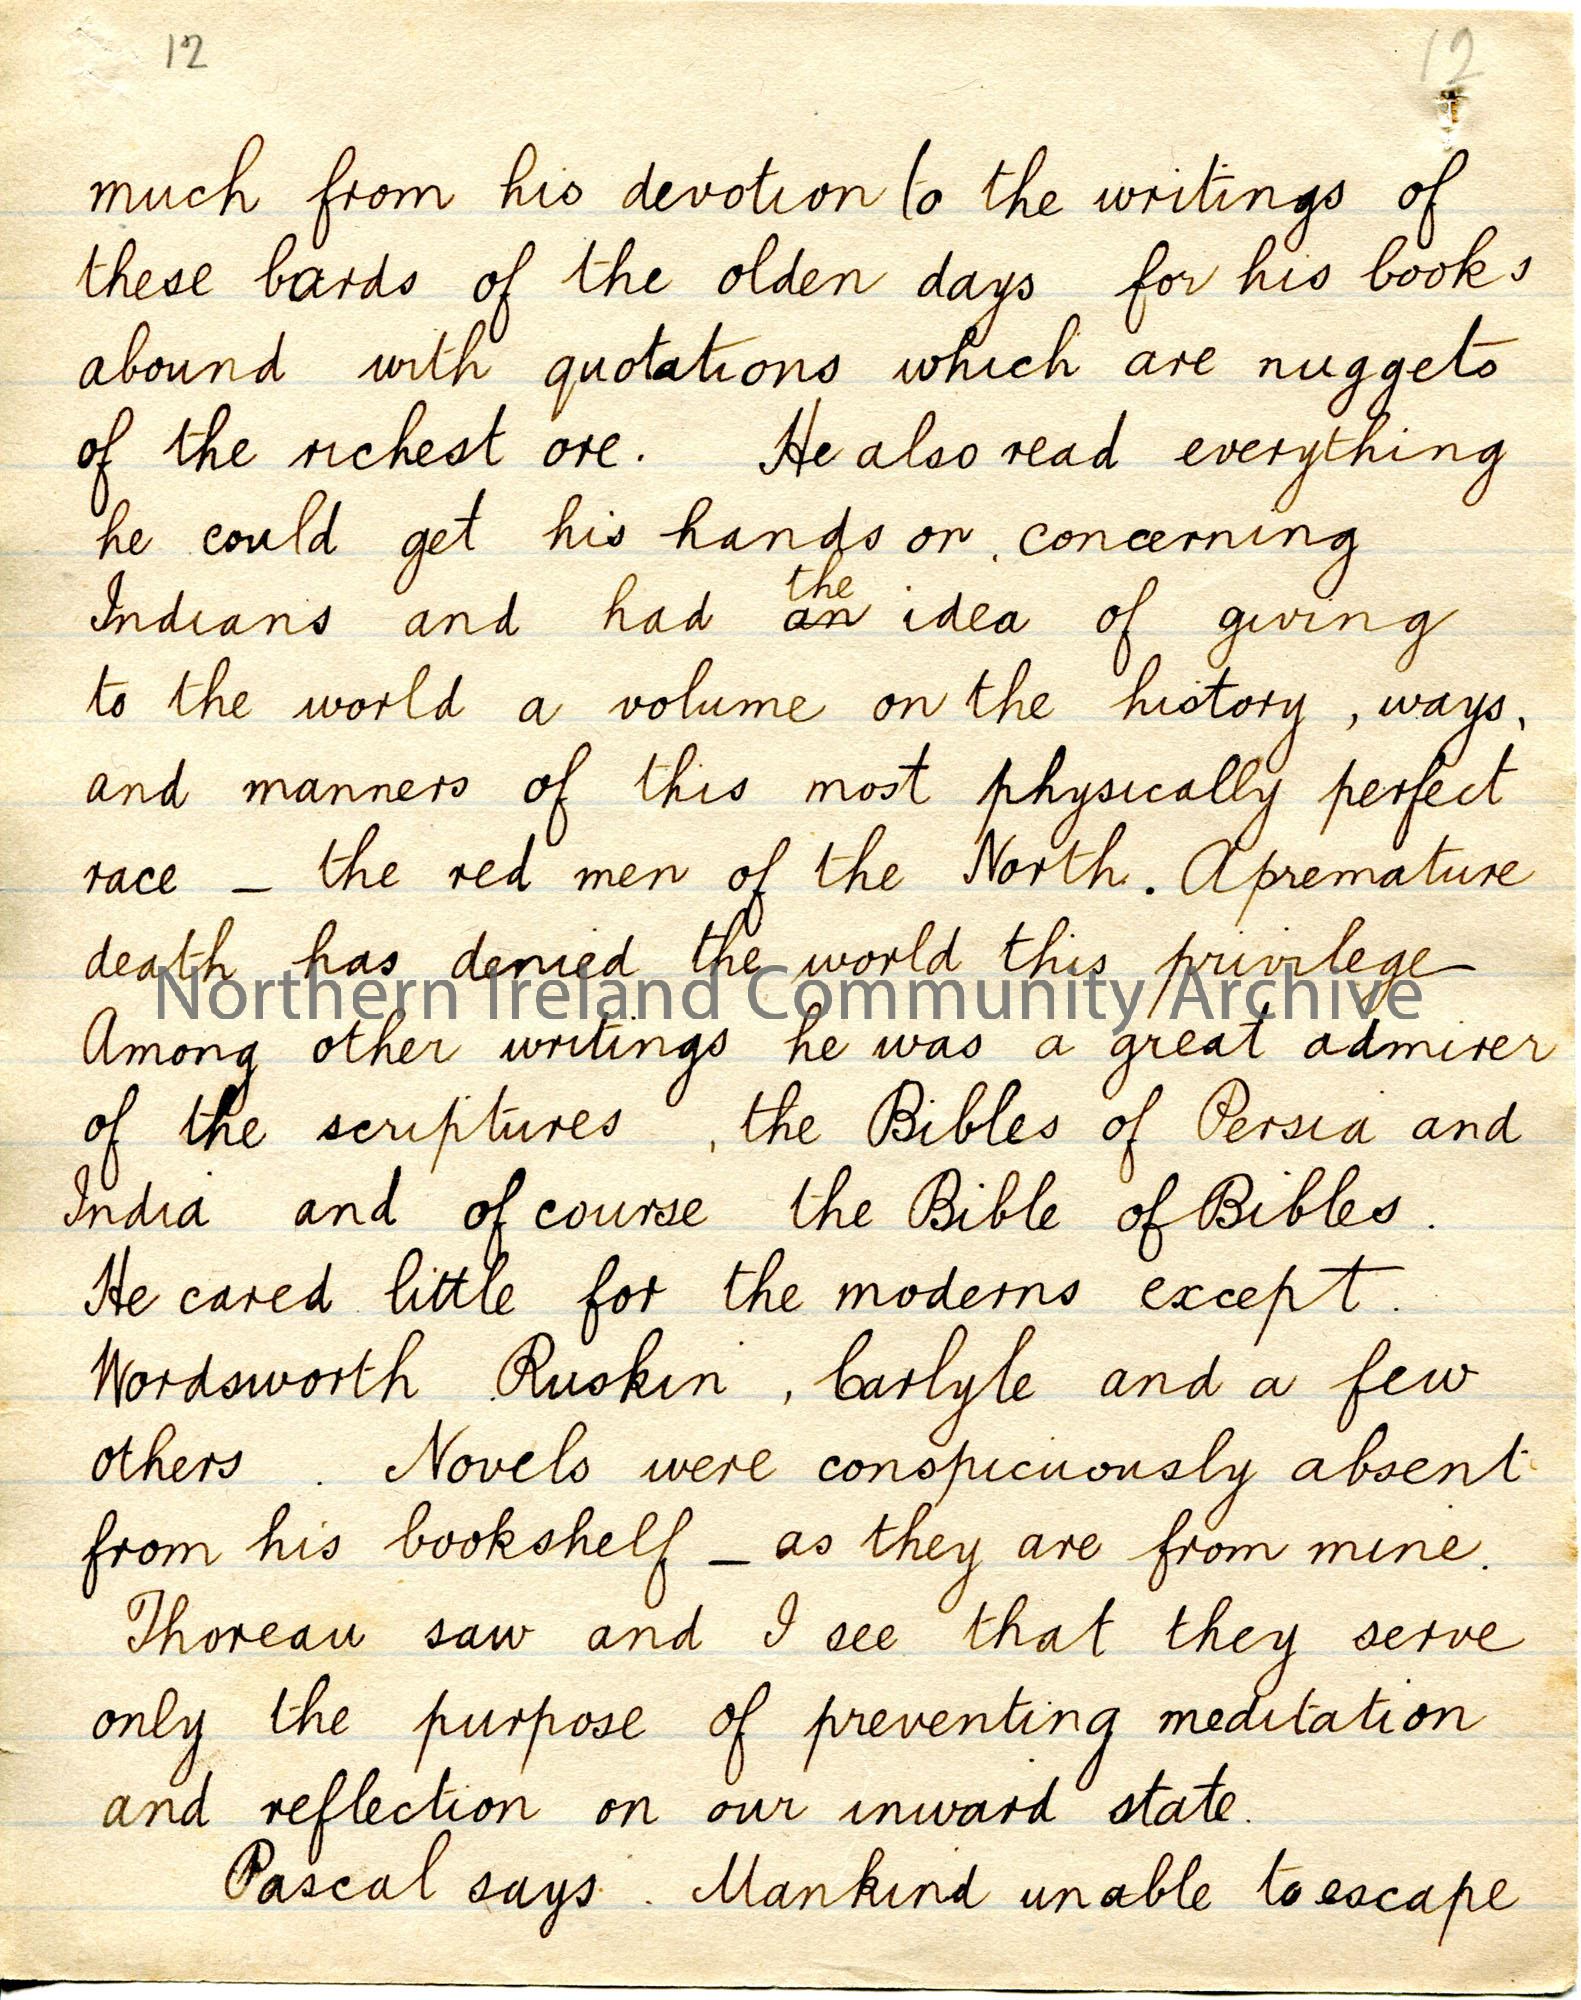 12 12
much from his devotion to the writings of
these bards of the olden days for his books
abound with quotations which are nuggets
of the richest ore. He also read everything
he could get his hands on concerning
the
Indians and had an idea of giving
to the world a volume on the history, ways,
and manners of this most physically perfect
race – the red men of the North. A premature
death has denied the world this privilege
Northern Ireland Community Archive
Among other writings he was a great admirer
of the scriptures, the Bibles of Persia and
India and of course the Bible of Bibles.
He cared little for the moderns except.
Wordsworth Ruskin, Carlyle and a few
others. Novels were conspicuously absent
from his bookshelf – as they are from mine.
Thoreau saw and I see that they serve
only the purpose of preventing meditation
and reflection on our inward state.
Pascal says. Mankind unable to escape